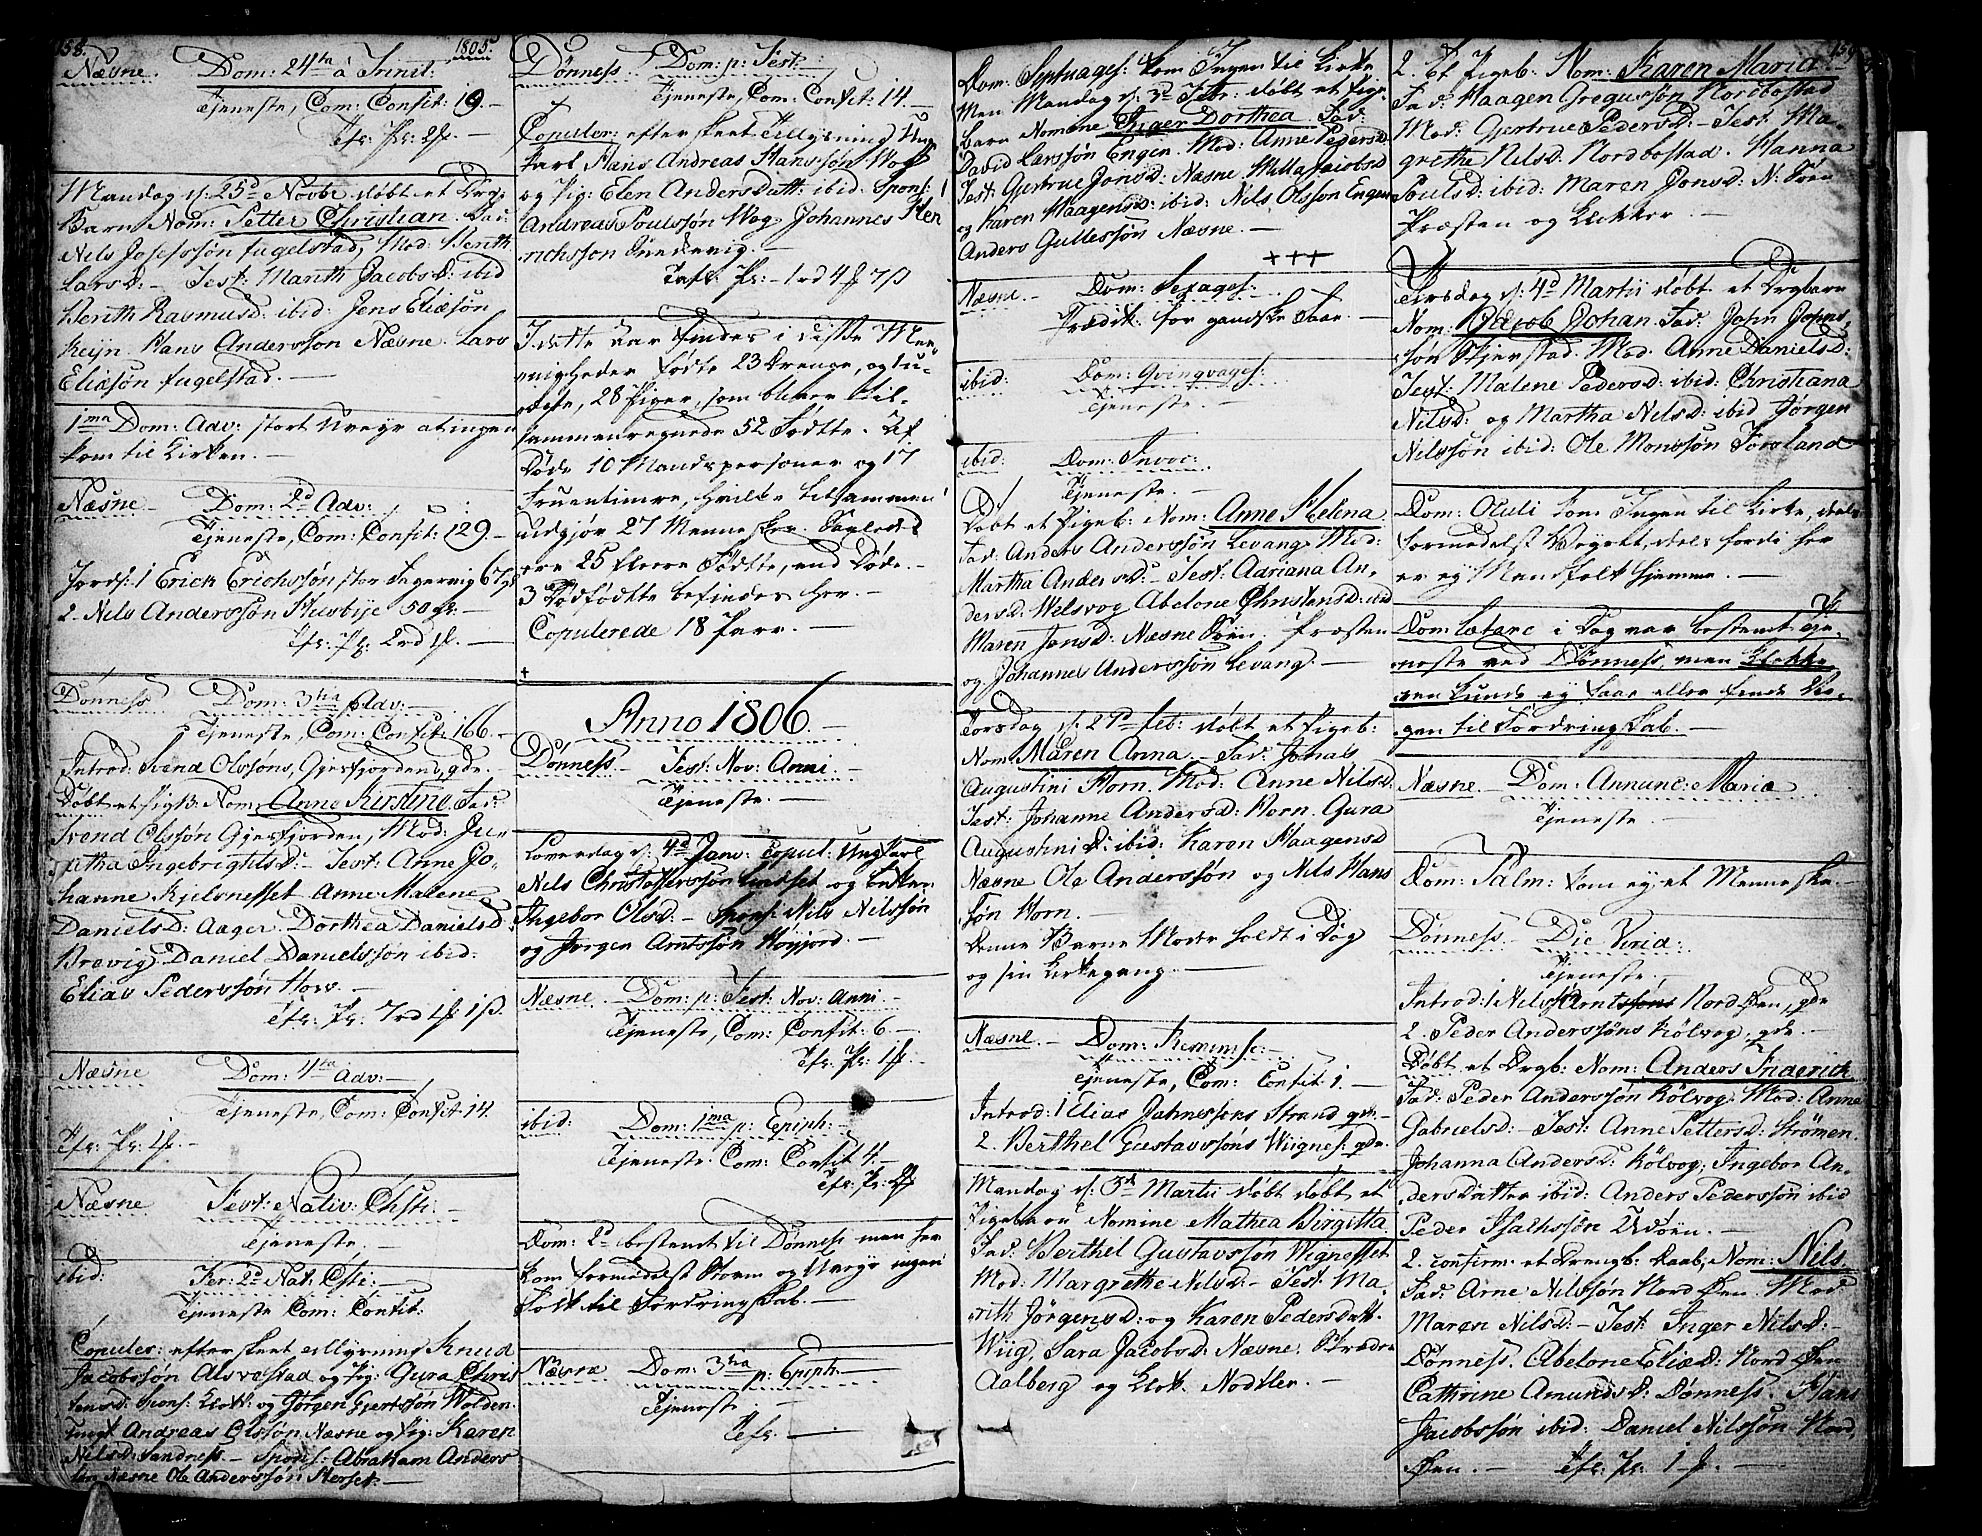 158.
1805.
Næsne. Dom: 24de à Trinit:
Tjeneste, Com: Confit: 19.
Tfr: Pr: 2f. —
Mandag d: 25d Novbr døbt et Drg:
Barn Nom: Petter Christian. Fad:
Nils Josefssøn fugelstad, Mod: Berith
Larsd: — Test: Marith Jacobsd: ibid
Berith Rasmusd: ibid: Jens Eliæsøn
Reijn. Hans Andersson Næsne. Lars
Eliæsøn fugelstad. —
1ma Dom: Adv: stort Uveyr at ingen
kom til Kirken. —
Næsne Dom: 2d Adv:
Tjeneste, Com: Confit: 129. —
Jordf: 1 Erick Erichssøn
2. Nils Anderssøn Husbye 50 gr. —
Tfr: Pr: 2rd 1f. —
Dønness Dom: 3tia Adv: —
Tjeneste, Com: Confit: 166. —
Introd: Svend Olssøns, Gjesfjorden, qde. —
Døbt et Pigb: Nom: Anne Kirstine. Fad:
Svend Olssøn Gjesfjorden, Mod: Ju-
ditha Ingebrigtsd: — Test: Anne Jo-
hanne Kjelsnesset Anne Malene
Danielsd: Aager Dorthea Danielsd:
Brevig. Daniel Danielssøn ibid:
Elias Pederssøn Horv. —
Tfr: Pr: 7rd 1f 1ß.
Næsne Dom: 4ta Adv: —
Tjeneste, Com: Confit: 14.
Tfr: Pr: 1f. —
Næsne Fest: Nativ: Chsti: —
Tjeneste. —
ibid: Fer: 2d Nat: Chti: —
Tjeneste Com: Confit:
Copuler: efter skeet tillysning Knud
Jacobssøn Alsvestad og Pig: Gura Chris
tensd: Spons: Klok: og Jørgen Gjertssøn Wolden.
Ungk: Andreas Olssøn Næsne og Pig: Karen
Nilsd: Sandness. — Spons: Abraham Anders
søn Næsne Ole Anderssøn
Dønness Dom: p: Fest:
Tjeneste, Com: Confit: 14. —
Copuler: efter skeet Tillysning Ung
karl Hans Andreas Hanssøn Wog
og Pig: Elen Andersdatt: ibid: Spons:
Andreas Poulssøn Wog Johannes Hen
richsson —
Tafl: Pr: — 1rd 4f 7ß
I dette Aar findes i disse Me-
nigheder fødte 23 Drenge, og
28 Piger, som bliver til-
sammenregnede 52 Fødte. Af
Døde 10 Mandspersoner og 17
Fruentimre, hvilke tilsammen
udgjør 27 Mennesker. Saaledes
ere 25 fleere Fødte, end Døde. —
3 Dødfødte befindes her. —
Copulerede 18 Parr. —
Anno 1806. —
Dønness Fest: Nov: Anni —
Tjeneste. —
Loverdag d: 4d Janv: Copul: Ungkarl
Nils Christofferssøn og Enke:
Ingebor Olsd: — Spons: Nils Nilssøn
og Jørgen Arntssøn Høyjord. —
Næsne. Dom: p: Fest: Nov: Anni —
Tjeneste, Com: Confit: 6 —
Tfr: Pr: 1f. —
ibid: Dom: 1ma p: Epiph: —
Tjeneste. Com: Confit 4. —
Tfr: Pr: 2f
Dom: 2d bestemt til Dønness men her
kom formedelst Storm og Uveyr ingen
Folk til Fordringskab. —
Næsne Dom: 3tia p: Epiph: —
Tjeneste —
Tfr: —
Dom: Septuages: kom Ingen til Kirke
Men Mandag d: 3d Febr: døbt et Pige
barn Nomine Inger Dorthea. Fad:
David Larssøn Engen. Mod: Anne Pedersd:
Test: Gertrue Jonsd: Næsne. Milla Jacobsd
og Karen Haagensd: ibid: Nils Olssøn Engen
Anders Gullessøn Næsne. —
+++
Næsne. — Dom: Sexages: —
Prædik: for gandske faae. —
ibid: Dom: Qvinqvages: —
Tjeneste. —
ibid: Dom: Invoc: —
Tjeneste. —
Døbt et Pigeb: Nom: Anne Helena
Fad: Anders Anderssøn Levang Mod:
Martha Andersd: — Test: Adriana An-
dersd: Welsvog Abelone Christensd: ibid
Maren Jonsd: Næsne Præsten
og Johannes Anderssøn Levang. —
Torsdag d: 27d feb: døbt et Pigeb:
Nom: Maren Anna — Fad: Jonas
Augustini Horn. Mod: Anne Nilsd:
Test: Johanne Andersd: Horn. Gura
Augustini D: ibid: Karen Haagensd
Næsne Ole Anderssøn og Nils Hans
søn Horn. —
Denne Barns Moder holdt i Dag
og sin Kirkegang. —
Næsne. — Dom: Reminisc: —
Tjeneste, Com: Confit 1. —
Introd: 1 Elias Jahnessøns Strand qde. —
2. Berthel Gustavssøns Wiignes: qde.
Mandag d: 3d Martii døbt døbt et
Pigebarn Nomine Mathea Birgitta
Fad: Berthel Gustavssøn Wignesset
Mod: Margrethe Nilsd: — Test: Ma-
rith Jörgensd: og Karen Pedersdatt:
Wiig, Sara Jacobsd: Næsne:
Aalberg og Klok. Nodtler. —
159
2. Et Pigeb: Nom: Karen Maria
Fad: Haagen Gregussøn Nordbostad
Mod: Gertrue Pedersd: — Test: Ma-
grethe Nilsd: Nordbostad. Hanna
Poulsd: ibid: Maren Jonsd: N:
Præsten og Klokker. —
Tirsdag d: 4d Martii døbt et Drgbarn
Nom: Jacob Johan. Fad: John Johns-
søn Skjerstad. Mod: Anne Danielsd:
Test: Malene Pedersd: ibid: Christiana
Nilsd: og Martha Nilsd: ibid Jørgen
Nilssøn ibid: Ole Monssøn Forsland
Dom: Oculi kom Ingen til Kirke, deels
formedelst Veyret, deels fordi her
er ey Mandfolk hjemme. —
Dom: Lætare i Dag var bestemt Tje-
neste ved Dønness, men Klokke-
ren kunde ey faae eller finde
til Fordringskab. —
Næsne. — Dom: Annunc: Mariæ
Tjeneste —
Dom: Palm: kom ey et Menneske. —
Dønness. Die Virid: —
Tjeneste. —
Introd: 1 Nils Arntssøns Nord Øen, qde
2. Peder Anderssøns Kölvog, qde. —
Døbt et Drgb: Nom: Anders Friderick
Fad: Peder Anderssøn Kölvog, Mod: Anne
Gabrielsd: — Test: Anne Pettersd: Strømen.
Johanna Andersd: Kölvog, Ingebor An-
dersdatter ibid: Anders Pederssøn ibid
Peder Isachssøn —
2. confirm: et Drengb: Daab, Nom: Nils.
Fad: Arne Nilssøn Nord Øen. Mod
Maren Nilsd: — Test: Inger Nilsd: —
Dønness. Abelone Eliæd: Nord Øen
Cathrine Amundsd: Dønness. Hans
Jacobssøn ibid: Daniel Nilssøn Nord
Øen. — Tfr: Pr: 1f. —